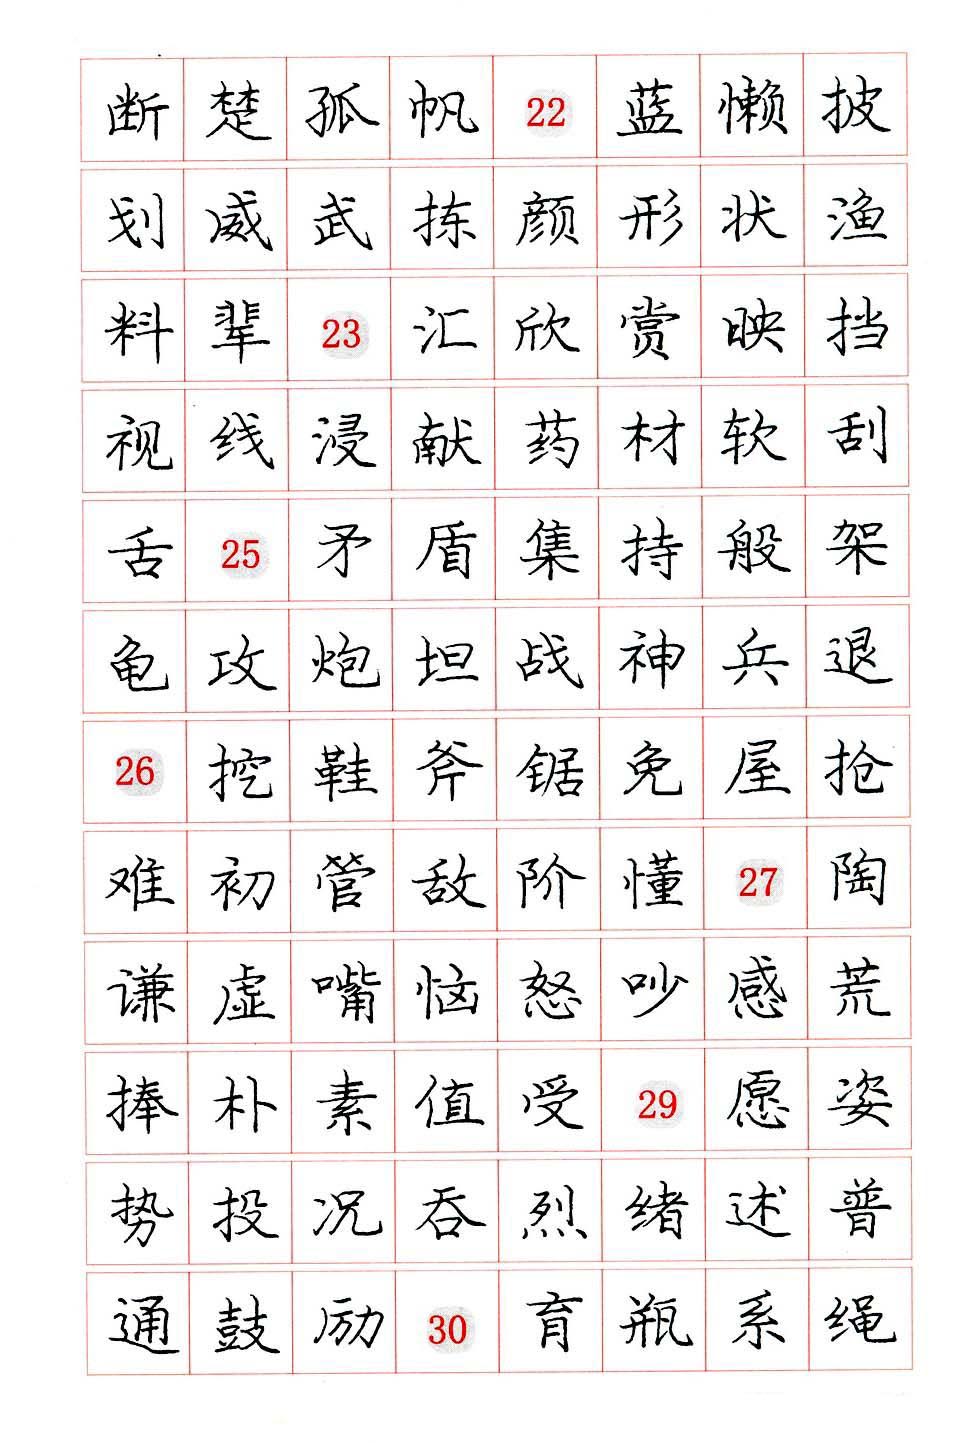 断 楚 孤 帆 22 蓝 懒 披
划 威 武 拣 颜 形 状 渔
料 辈 23 汇 欣 赏 映 挡
视 线 浸 献 药 材 软 刮
舌 25 矛 盾 集 持 般 架
龟 攻 炮 坦 战 神 兵 退
26 挖 鞋 斧 锯 免 屋 抢
难 初 管 敌 阶 懂 27 陶
谦 虚 嘴 恼 怒 吵 感 荒
捧 朴 素 值 受 29 愿 姿
势 投 况 吞 烈 绪 述 普
通 鼓 励 30 育 瓶 系 绳